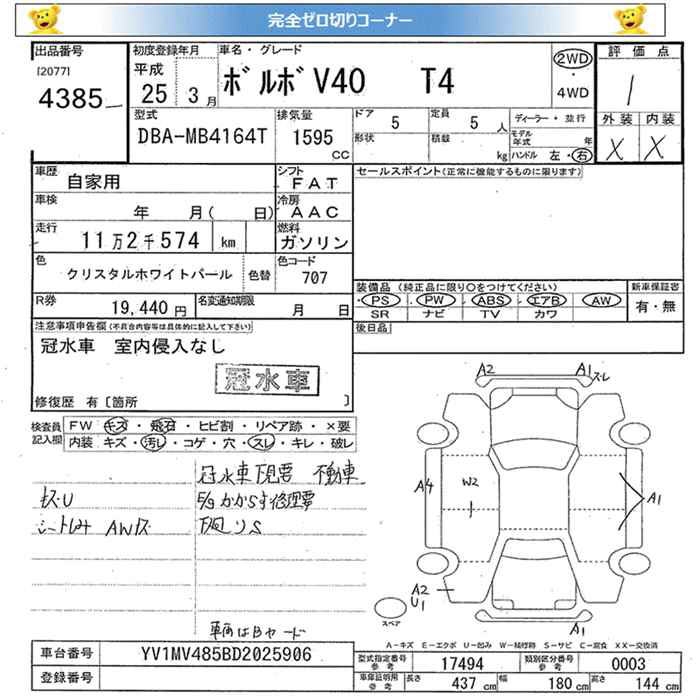 完全ゼロ切りコーナー
出品番号 初度登録年月 車名・グレード 評価点
[2077] 平成 ボルボ V40 T4 2WD
4385 25 3月 ・ 4WD 1
型式 排気量 ドア 5 定員 5人 ディーラー・並行 外装 内装
DBA-MB4164T 1595 CC 形状 積載 kg モデル年式 年 ハンドル 左・右 X X
車歴 自家用 シフト FAT セールスポイント(正常に機能するものに限ります)
車検 年 月( 日) 冷房 AAC
走行 11万2千574 km 燃料 ガソリン
色 クリスタルホワイトパール 色替 色コード 707
装備品 (純正品に限り○をつけてください) 新車保証書
R券 19,440円 名変通知期限 月 日 PS ・ PW ・ ABS ・ エアB ・ AW 有・無
SR ナビ TV カワ
注意事項申告欄(不具合内容等は具体的に記入して下さい) 後日品
冠水車 室内侵入なし
冠水車
修復歴 有 [箇所 ]
検査員記入欄 FW キズ・飛石・ヒビ割・リペア跡・×要
内装 キズ・汚レ・コゲ・穴・スレ・キレ・破レ
冠水車下見要 不動車
キズU E/gかからず修理要
シートしみ AWキズ 下廻りS
車両はBヤード
A2 A1 スレ
A4 W2 A1
A2
U1
スペア A1
A-キズ E-エクボ U-凹み W-補修跡 S-サビ C-腐食 XX-交換済
車台番号 YV1MV485BD2025906 型式指定番号 参考 17494 類別区分番号 参考 0003
登録番号 車庫証明用 参考 長さ 437cm 幅 180cm 高さ 144cm